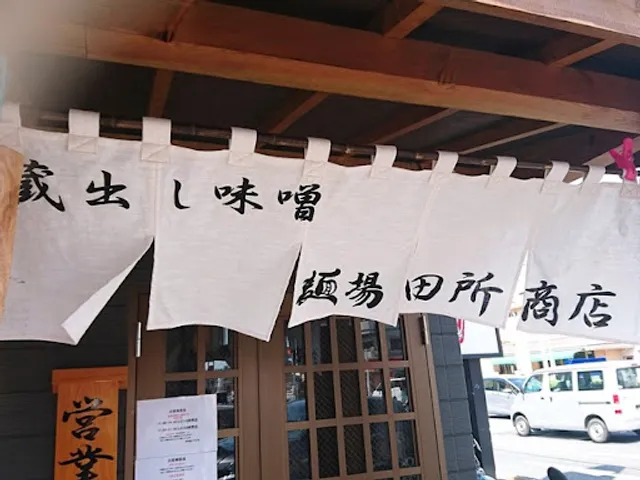 蔵出し味噌
麺場田所商店
営業